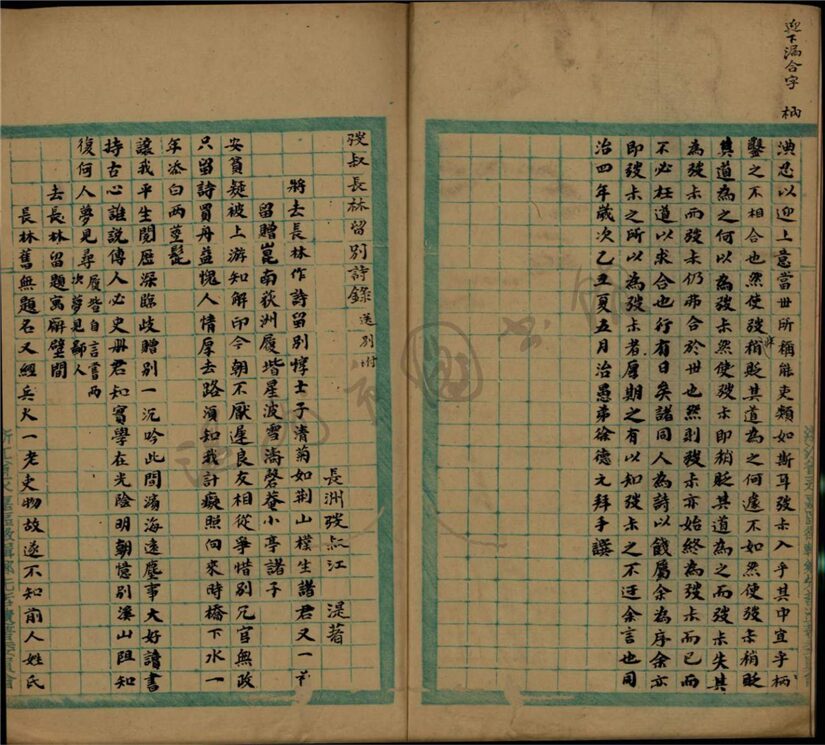 迎下漏合字 柄
淟忍以迎上意當世所稱能吏類如斯耳弢尗入乎其中宜乎柄
鑿之不相合也然使弢尗稍貶其道為之何遽不如然使弢尗稍貶
其道為之何以為弢尗然使弢尗即稍貶其道為之而弢尗失其
為弢尗而弢尗仍弗合於世也然則弢尗亦始終為弢尗而已而
不必枉道以求合也行有日矣諸同人為詩以餞屬余為序余亦
即弢尗之所以為弢尗者厚期之有以知弢尗之不迂余言也同
治四年歲次乙丑夏五月治愚弟徐德元拜手譔
弢叔長林留別詩錄 送別附
長洲弢叔江 湜著
將去長林作詩留別惇士子清菊如荆山樸生諸君又一首
留贈崑南荻洲履堦星波雪濤磬菴小亭諸子
安貧疑被上游知解印今朝不厭遲良友相從爭惜別冗官無政
只留詩買舟益愧人情厚去路須知我計癡照向來時橋下水一
年添白兩莖髭
讓我平生閱歷深臨歧贈別一沉吟此間濱海遠塵事大好讀書
持古心誰說傳人必史册君知實學在光陰明朝憶別溪山阻知
復何人夢見尋 履堦自言嘗兩次夢見鄙人
去長林留題寓廨壁間
長林舊無題名又經兵火一老吏物故遂不知前人姓氏